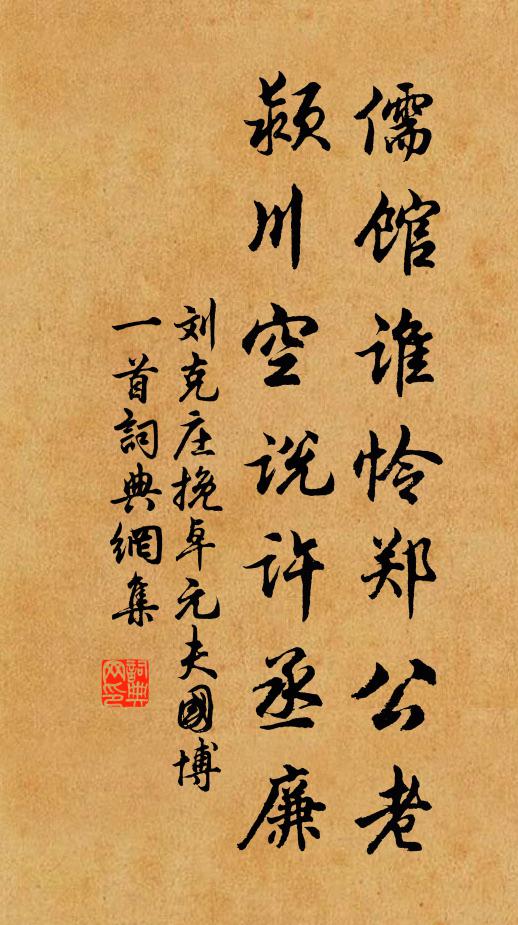 儒館谁怜郑公老
颍川空说许丞廉
刘克庄挽卓元夫國博
一首詞典網集
詞典網印